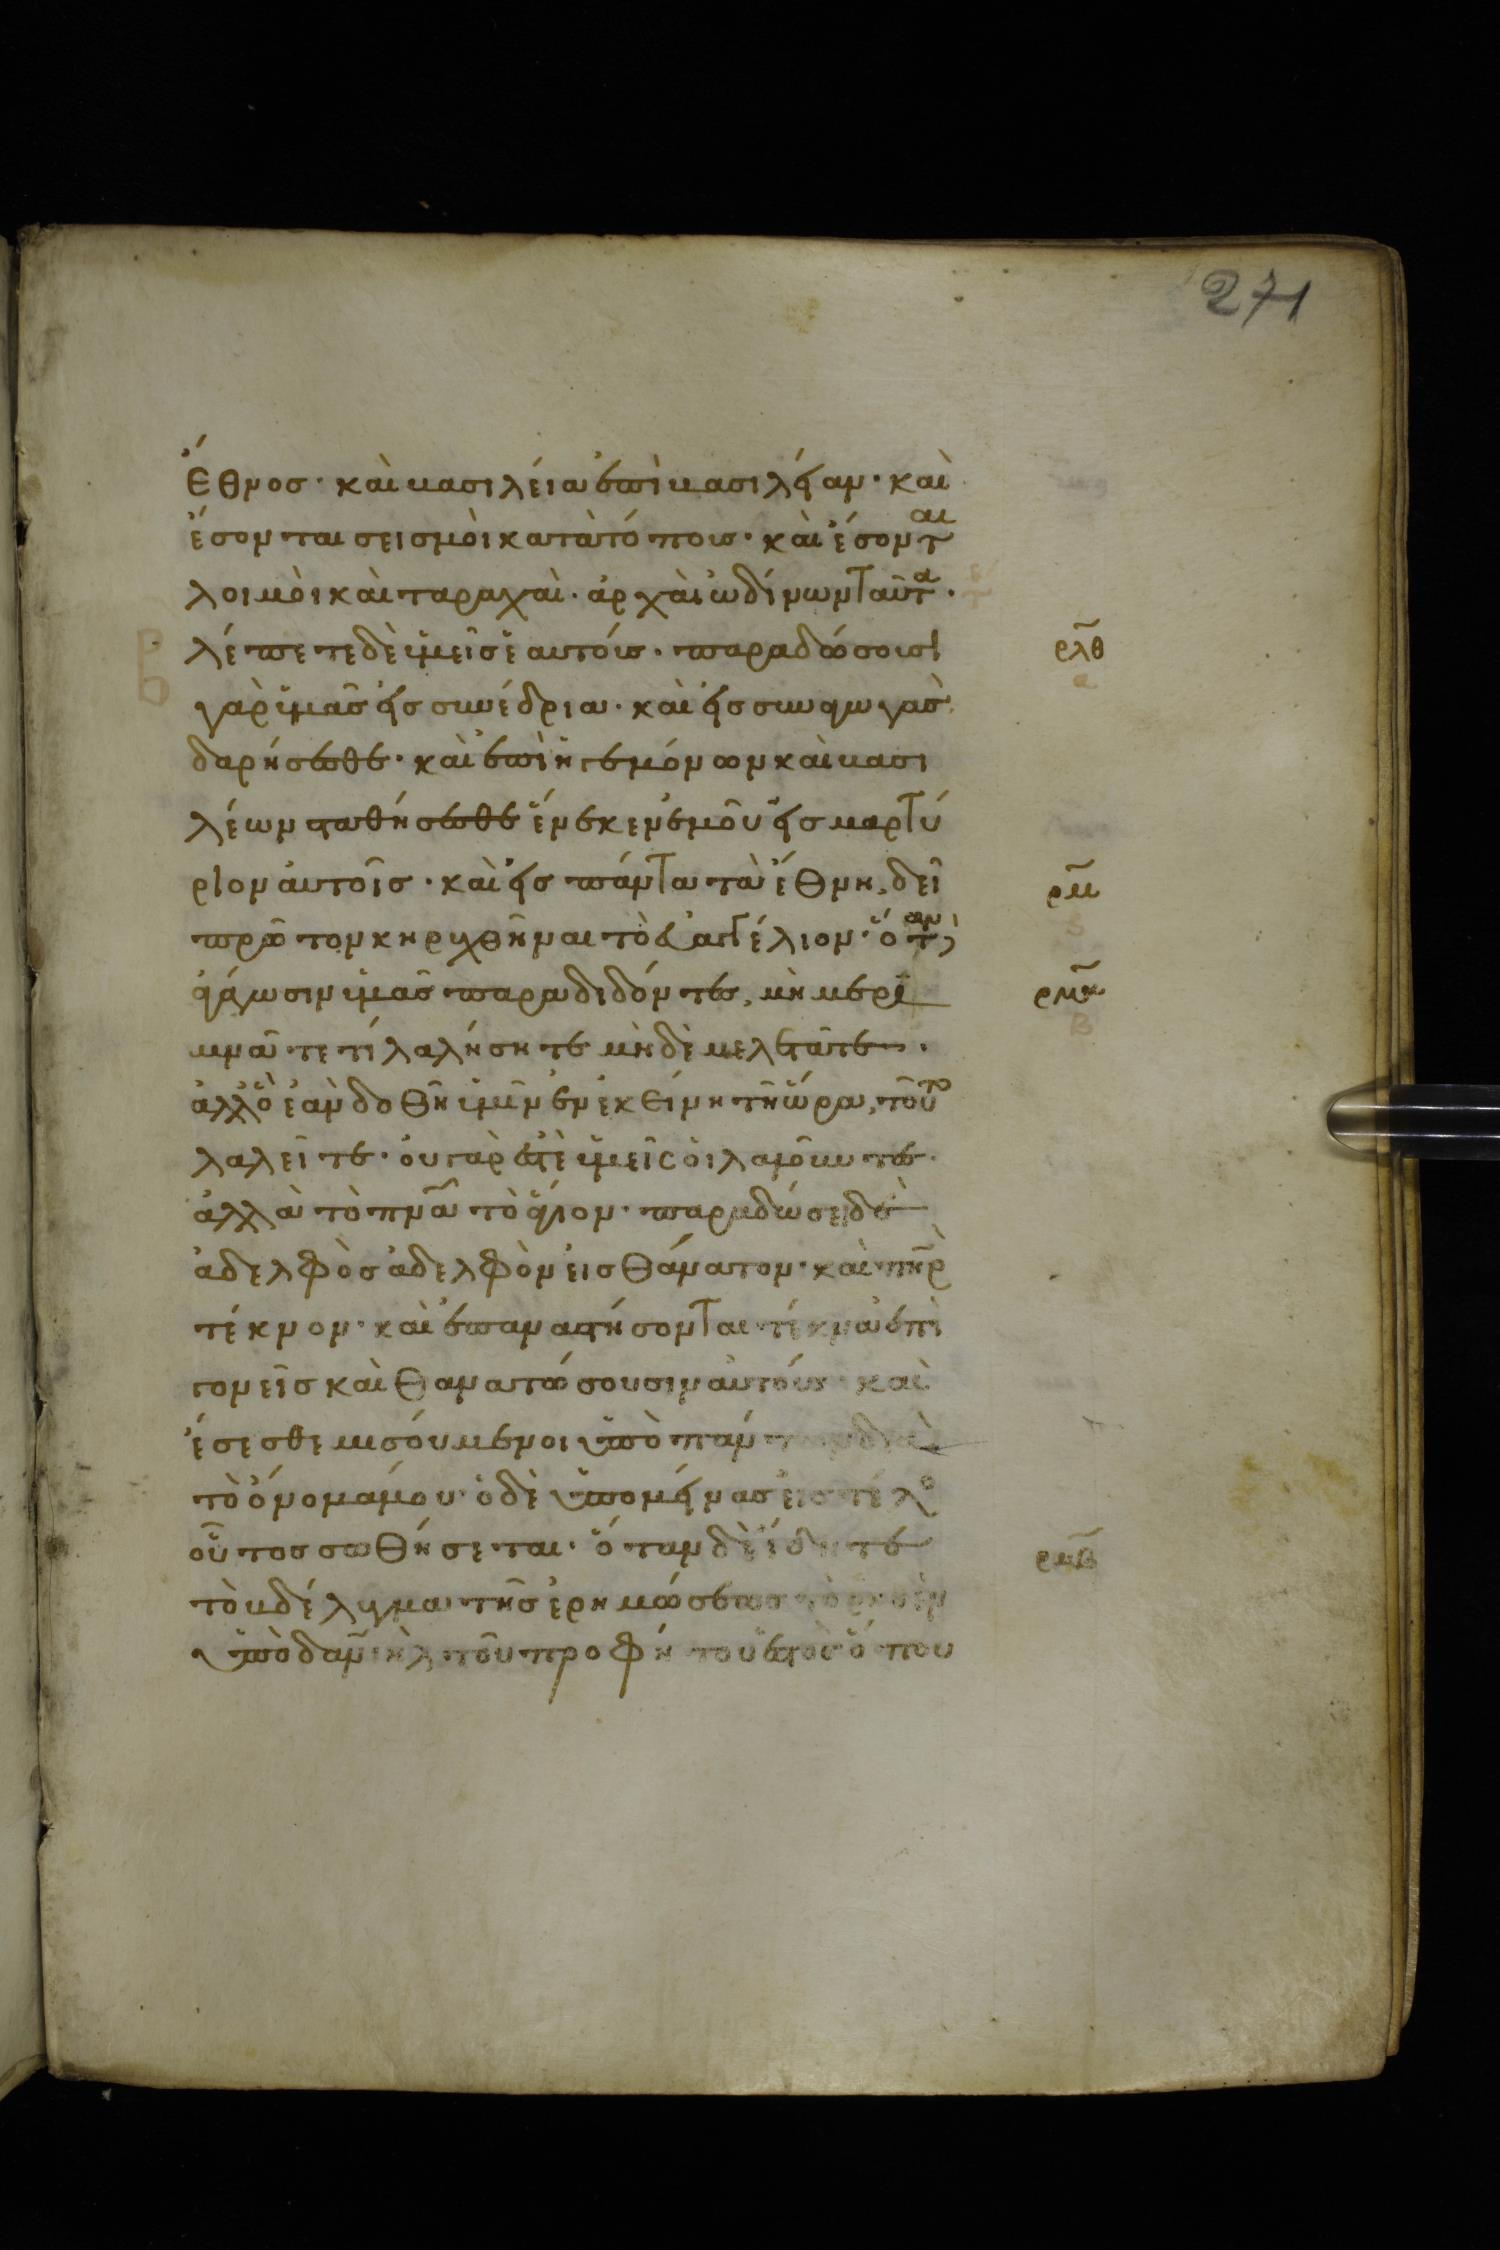 271
ἔθνος · καὶ βασιλεία ἐπὶ βασιλείαν · καὶ
ἔσονται σεισμοὶ κατὰ τόπους · καὶ ἔσονται
λοιμοὶ καὶ ταραχαὶ · ἀρχαὶ ὠδίνων ταῦτα ·
λέπετε δὲ ὑμεῖς ἑαυτούς · παραδώσουσι ρλθ
γὰρ ὑμᾶς εἰς συνέδρια · καὶ εἰς συναγωγὰς
δαρήσεσθε · καὶ ἐπὶ ἡγεμόνων καὶ βασι
λέων σταθήσεσθε ἕνεκεν ἐμοῦ εἰς μαρτύ
ριον αὐτοῖς · καὶ εἰς πάντα τὰ ἔθνη, δεῖ ρμ
πρῶτον κηρυχθῆναι τὸ εὐαγγέλιον · ὅταν
ἀγάγωσιν ὑμᾶς παραδιδόντες, μὴ μερι ρμα
μνᾶτε τί λαλήσητε μὴ δὲ μελετᾶτε ·
ἀλλ' ὃ ἐὰν δοθῆ ὑμῖν ἐν ἐκείνη τῆ ὥρα, τοῦτο
λαλεῖτε · οὐ γὰρ ἐστὲ ὑμεῖς οἱ λαλοῦντες ·
ἀλλὰ τὸ πνα τὸ ἅγιον · παραδώσει δὲ
ἀδελφὸς ἀδελφὸν εἰς θάνατον · καὶ πηρ
τέκνον · καὶ ἐπαναστήσονται τέκνα ἐπὶ
γονεῖς καὶ θανατώσουσιν αὐτούς · καὶ
ἔσεσθε μισούμενοι ὑπὸ πάντων διὰ
τὸ ὄνομά μου · ὁ δὲ ὑπομείνας εἰς τέλος
οὗτος σωθήσεται · ὅταν δὲ ἴδητε ρμβ
τὸ βδέλυγμα τῆς ἐρημώσεως τὸ ρηθὲν
ὑπὸ δανιὴλ τοῦ προφήτου ἑστὸς ὅπου